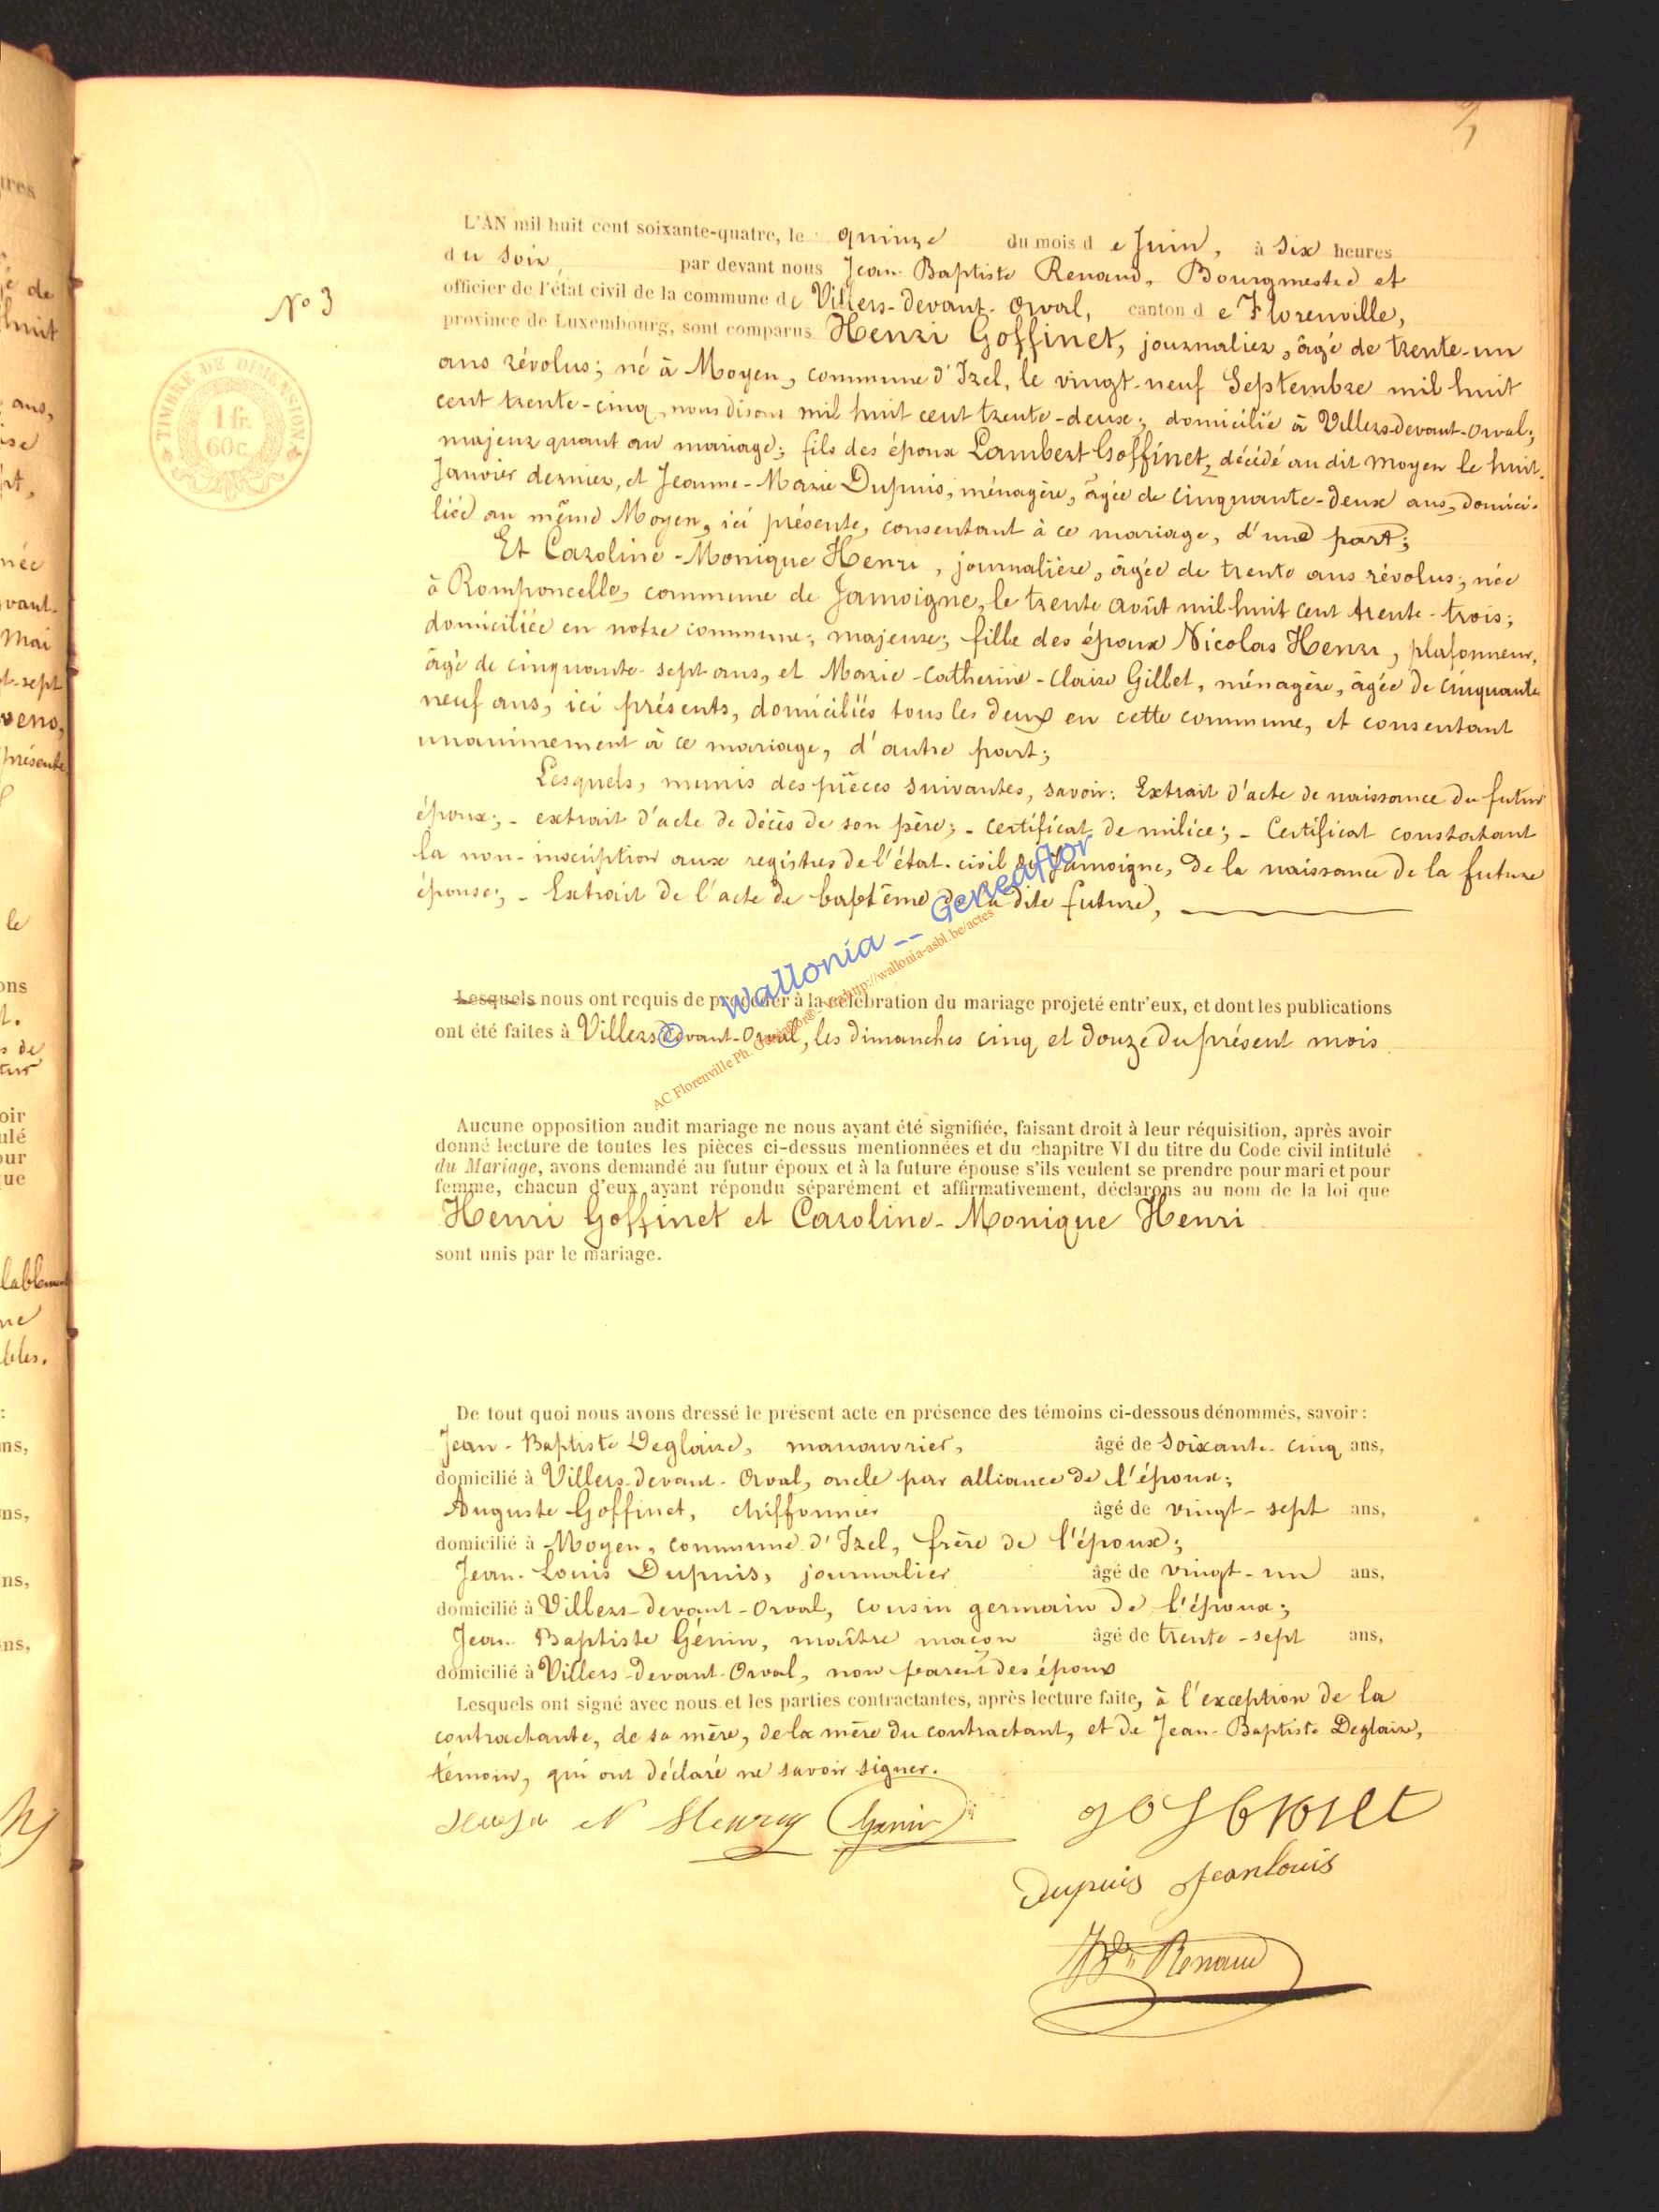 N° 3
TIMBRE DE DIMENSION
1 fr.
60 c.
L'AN mil huit cent soixante-quatre, le quinze du mois de Juin, à Six heures
du soir, par devant nous Jean-Baptiste Renaud, Bourgmestre et
officier de l'état civil de la commune de Villers-devant-Orval, canton de Florenville,
province de Luxembourg, sont comparus Henri Goffinet, journalier, âgé de trente-un
ans révolus; né à Moyen, commune d'Izel, le vingt-neuf Septembre mil huit
cent trente-cinq, nous disons mil huit cent trente-deux; domicilié à Villers-devant-Orval;
majeur quant au mariage; fils des époux Lambert Goffinet, décédé au dit Moyen le huit
Janvier dernier, et Jeanne-Marie Dupuis, ménagère, âgée de cinquante-deux ans, domici-
liée au même Moyen, ici présente, consentant à ce mariage, d'une part;
Et Caroline-Monique Henri, journalière, âgée de trente ans révolus; née
à Romponcelle, commune de Jamoigne, le trente août mil huit cent trente-trois;
domiciliée en notre commune; majeure; fille des époux Nicolas Henri, plafonneur,
âgé de cinquante-sept ans, et Marie-Catherine-Claire Gillet, ménagère, âgée de cinquante
neuf ans, ici présents, domiciliés tous les deux en cette commune, et consentant
unanimement à ce mariage, d'autre part;
Lesquels, munis des pièces suivantes, savoir: Extrait d'acte de naissance du futur
époux; - extrait d'acte de décès de son père; - certificat de milice; - Certificat constatant
la non-inscription aux registres de l'état-civil de Jamoigne, de la naissance de la future
épouse; - Extrait de l'acte de baptême de la dite future,
Lesquels nous ont requis de procéder à la célébration du mariage projeté entr'eux, et dont les publications
ont été faites à Villers-devant-Orval, les dimanches cinq et douze du présent mois
© Wallonia -- Geneaflor
Aucune opposition audit mariage ne nous ayant été signifiée, faisant droit à leur réquisition, après avoir
donné lecture de toutes les pièces ci-dessus mentionnées et du chapitre VI du titre du Code civil intitulé
du Mariage, avons demandé au futur époux et à la future épouse s'ils veulent se prendre pour mari et pour
femme, chacun d'eux ayant répondu séparément et affirmativement, déclarons au nom de la loi que
Henri Goffinet et Caroline-Monique Henri
sont unis par le mariage.
De tout quoi nous avons dressé le présent acte en présence des témoins ci-dessous dénommés, savoir:
Jean-Baptiste Deglaire, manouvrier, âgé de soixante-cinq ans,
domicilié à Villers-devant-Orval, oncle par alliance de l'époux;
Auguste Goffinet, chiffonnier âgé de vingt-sept ans,
domicilié à Moyen, commune d'Izel, frère de l'époux;
Jean-Louis Dupuis, journalier âgé de vingt-un ans,
domicilié à Villers-devant-Orval, cousin germain de l'époux;
Jean-Baptiste Génin, maître maçon âgé de trente-sept ans,
domicilié à Villers-devant-Orval, non parent des époux
Lesquels ont signé avec nous et les parties contractantes, après lecture faite, à l'exception de la
contractante, de sa mère, de la mère du contractant, et de Jean-Baptiste Deglaire,
témoin, qui ont déclaré ne savoir signer.
N Henry Genin
Dupuis Jeanlouis
Renaud